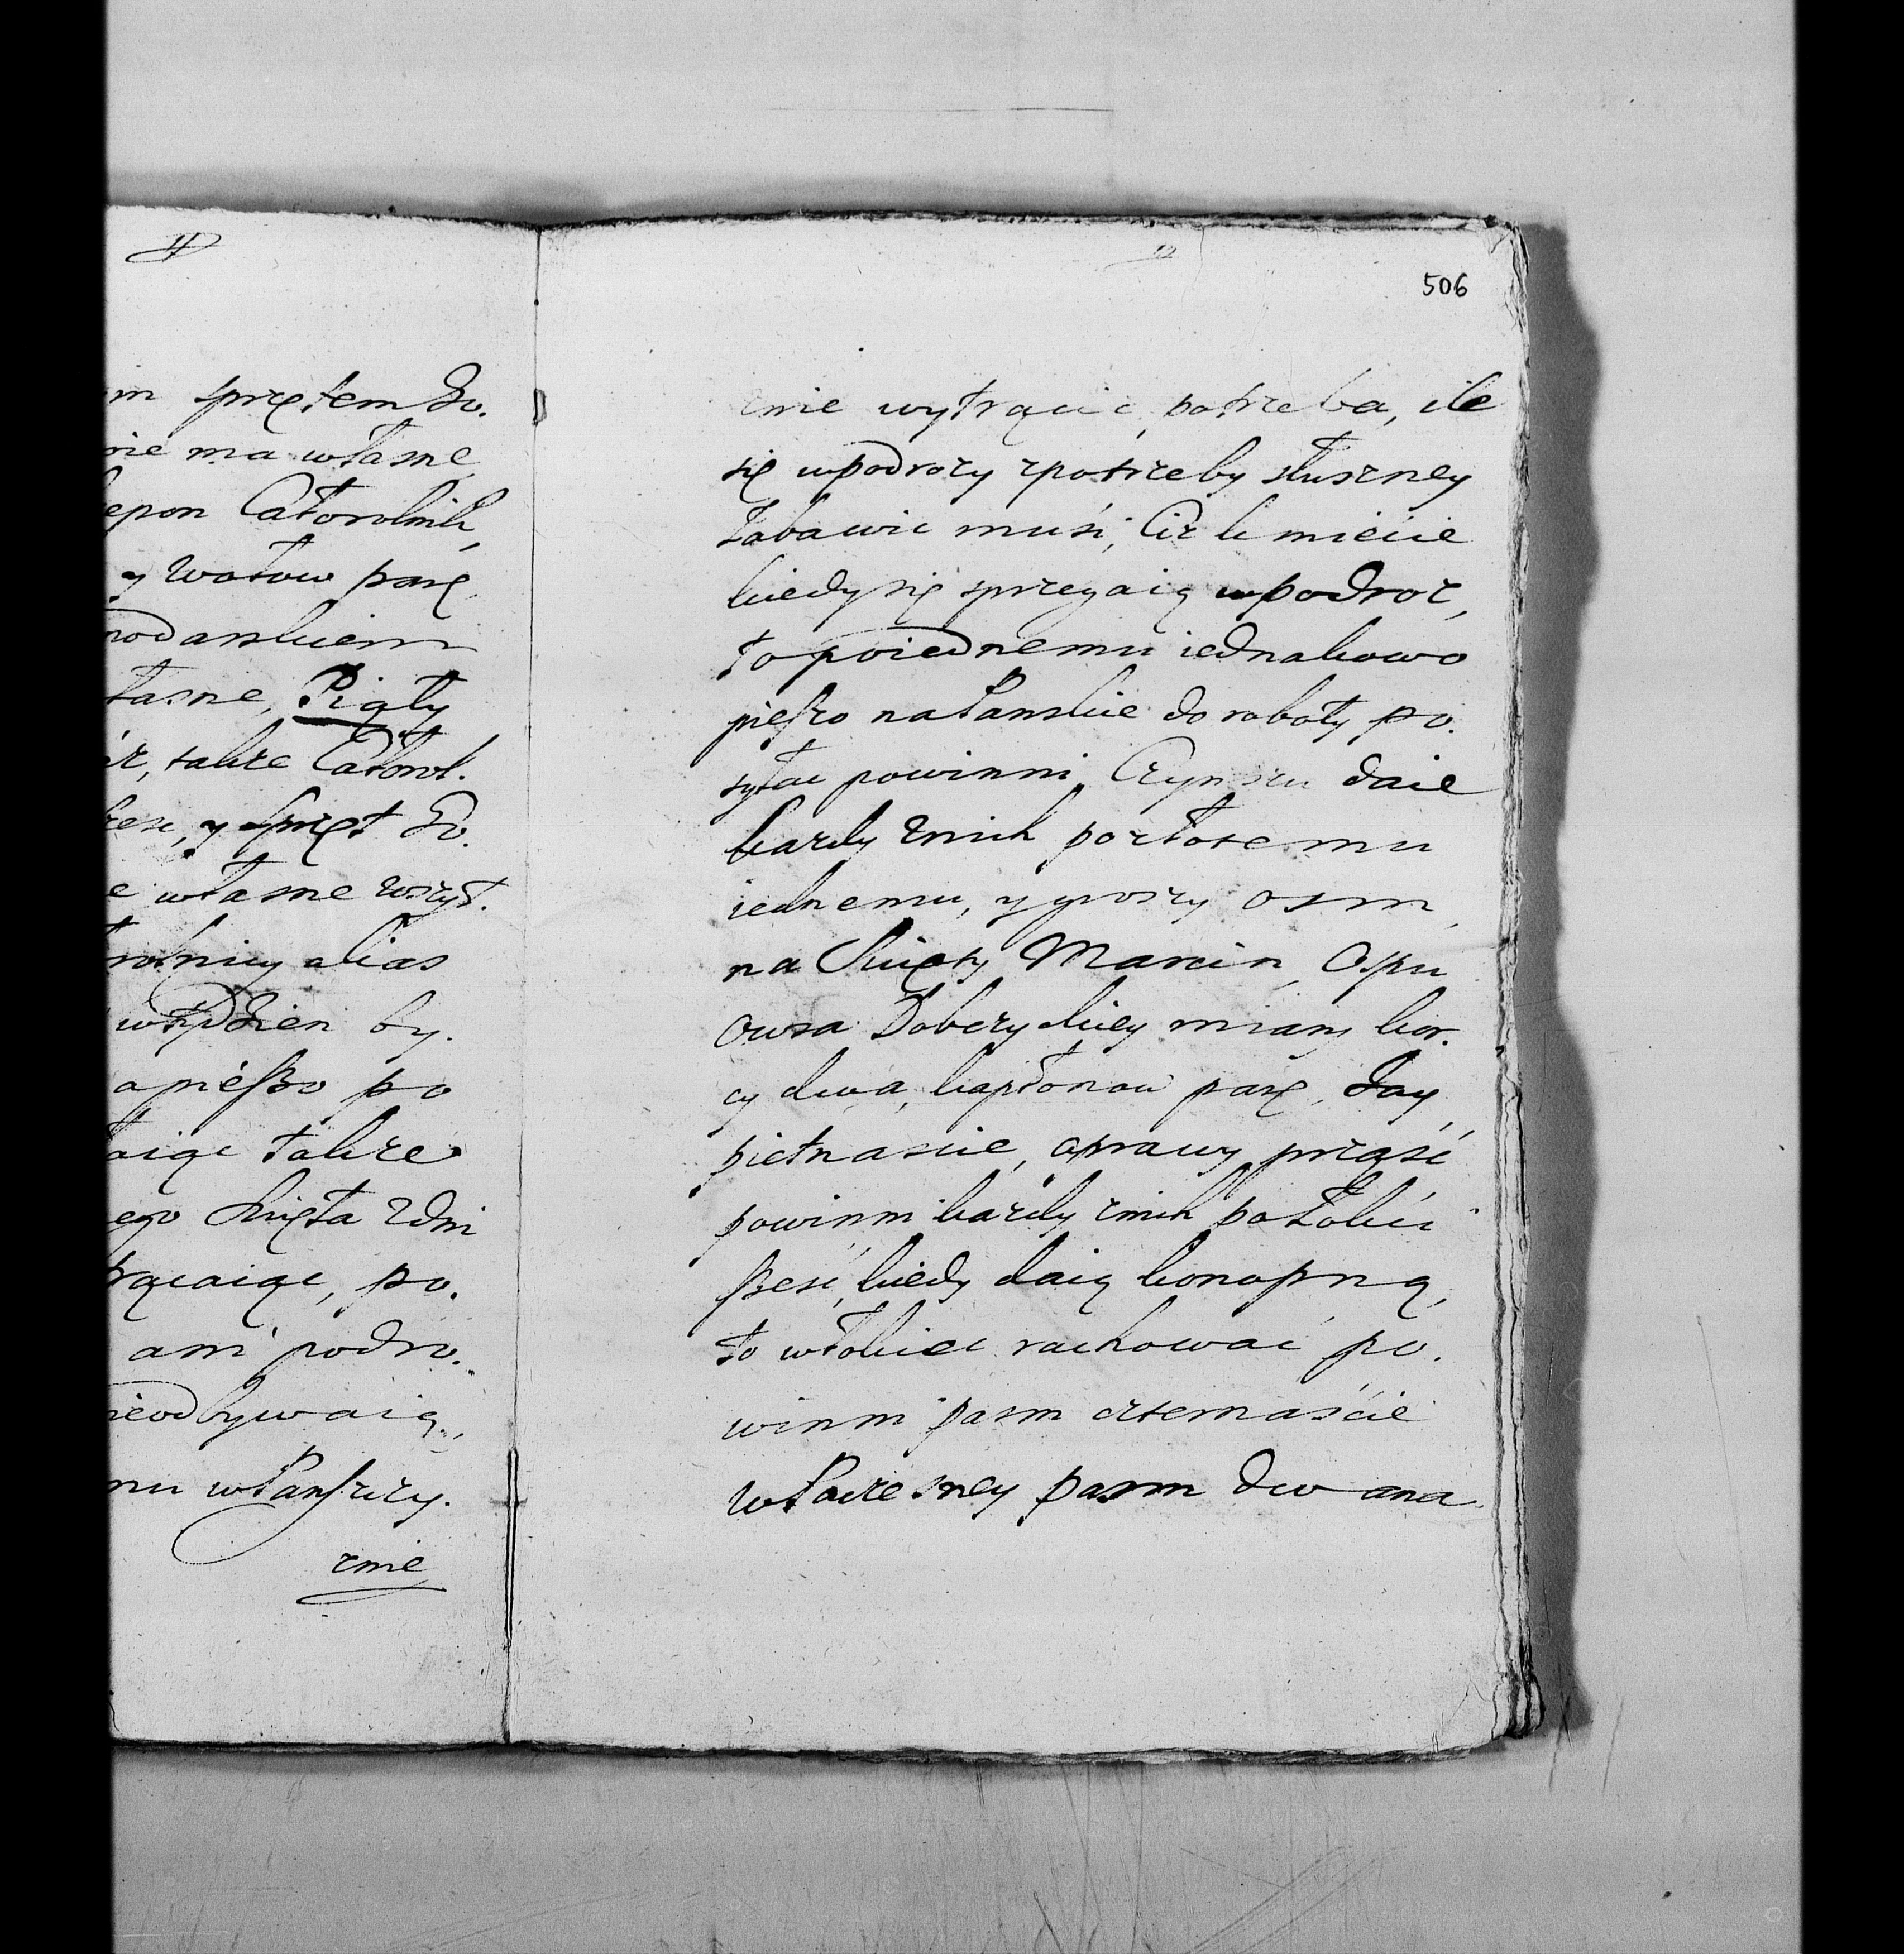 11
m sprzętem do.
nie ma własne
epon Całorolnik,
y wołow parę,
poddanskiem
łasne, Piąty
także Całorol.
y sprzęt do.
e własne wszyt.
rolnicy alias
w tydzień by.
a pießo po
aiąc także
ego święta z dni
trącaiąc, po.
ani podro.
nieodbywaią,
mu w Panszczy.
znie
12
506
znie wytrącic potrzeba, ile
się wpodrozy zpotrzeby słuszney
zabawic musi, Ciz kmiecie
kiedy się sprzęgaią wpodroz,
to poiednemu iednakowo
pießo na Panskie do roboty po.
syłac powinni, Czynszu daie
kazdy znich po złotemu
iednemu, y groszy osm,
na Swięty Marcin, Ospu
owsa Dobczyckiey miary kor.
cy dwa, kapłonow parę, Jay,
pietnascie, oprawy prząść
powinni kazdy znich po łokci
ßesć, kiedy daią konopną,
to w łokiec rachowac po.
winni pasm czternaście
w Paczesney pasm dwana